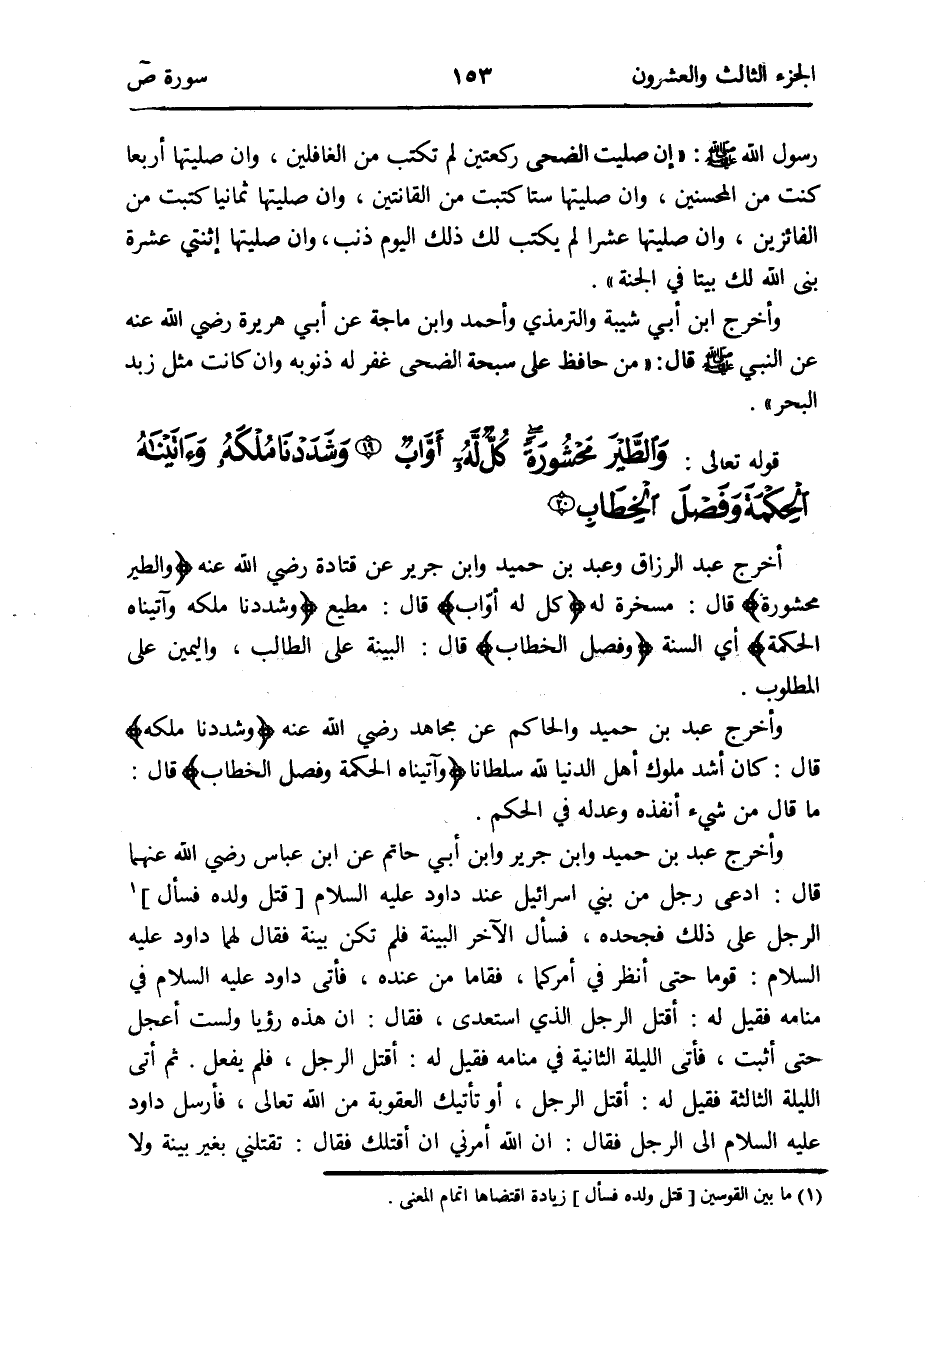 الجزء الثالث والعشرون ١٥٣ سورة صٓ
رسول الله ﷺ : «إن صليت الضحى ركعتين لم تكتب من الغافلين ، وان صليتها أربعا
كنت من المحسنين ، وان صليتها ستا كتبت من القانتين ، وان صليتها ثمانيا كتبت من
الفائزين ، وان صليتها عشرا لم يكتب لك ذلك اليوم ذنب، وان صليتها إثنتي عشرة
بنى الله لك بيتا في الجنة» .
وأخرج ابن أبي شيبة والترمذي وأحمد وابن ماجة عن أبي هريرة رضي الله عنه
عن النبي ﷺ قال: «من حافظ على سبحة الضحى غفر له ذنوبه وان كانت مثل زبد
البحر» .
قوله تعالى : وَٱلطَّيْرَ مَحْشُورَةً ۖ كُلٌّ لَّهُۥٓ أَوَّابٌ ﴿١٩﴾ وَشَدَدْنَا مُلْكَهُۥ وَءَاتَيْنَٰهُ
ٱلْحِكْمَةَ وَفَصْلَ ٱلْخِطَابِ ﴿٢٠﴾
أخرج عبد الرزاق وعبد بن حميد وابن جرير عن قتادة رضي الله عنه ﴿والطير
محشورة﴾ قال : مسخرة له ﴿كل له أوّاب﴾ قال : مطيع ﴿وشددنا ملكه وآتيناه
الحكمة﴾ أي السنة ﴿وفصل الخطاب﴾ قال : البينة على الطالب ، واليمين على
المطلوب .
وأخرج عبد بن حميد والحاكم عن مجاهد رضي الله عنه ﴿وشددنا ملكه﴾
قال : كان أشد ملوك أهل الدنيا لله سلطانا ﴿وآتيناه الحكمة وفصل الخطاب﴾ قال :
ما قال من شيء أنفذه وعدله في الحكم .
وأخرج عبد بن حميد وابن جرير وابن أبي حاتم عن ابن عباس رضي الله عنهما
قال : ادعى رجل من بني اسرائيل عند داود عليه السلام [ قتل ولده فسأل ]¹
الرجل على ذلك فجحده ، فسأل الآخر البينة فلم تكن بينة فقال لهما داود عليه
السلام : قوما حتى أنظر في أمركما ، فقاما من عنده ، فأتى داود عليه السلام في
منامه فقيل له : أقتل الرجل الذي استعدى ، فقال : ان هذه رؤيا ولست أعجل
حتى أثبت ، فأتى الليلة الثانية في منامه فقيل له : أقتل الرجل ، فلم يفعل . ثم أتى
الليلة الثالثة فقيل له : أقتل الرجل ، أو تأتيك العقوبة من الله تعالى ، فأرسل داود
عليه السلام الى الرجل فقال : ان الله أمرني ان أقتلك فقال : تقتلني بغير بينة ولا
(١) ما بين القوسين [ قتل ولده فسأل ] زيادة اقتضاها اتمام المعنى .